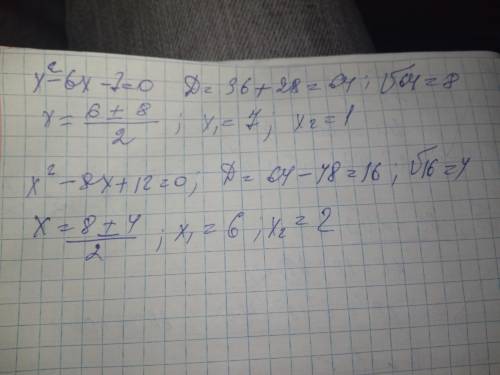 x²-6x-7=0 D=36+28=64; √64=8
x=(6±8)/2; x₁=7; x₂=1
x²-8x+12=0; D=64-48=16; √16=4
x=(8±4)/2; x₁=6; x₂=2